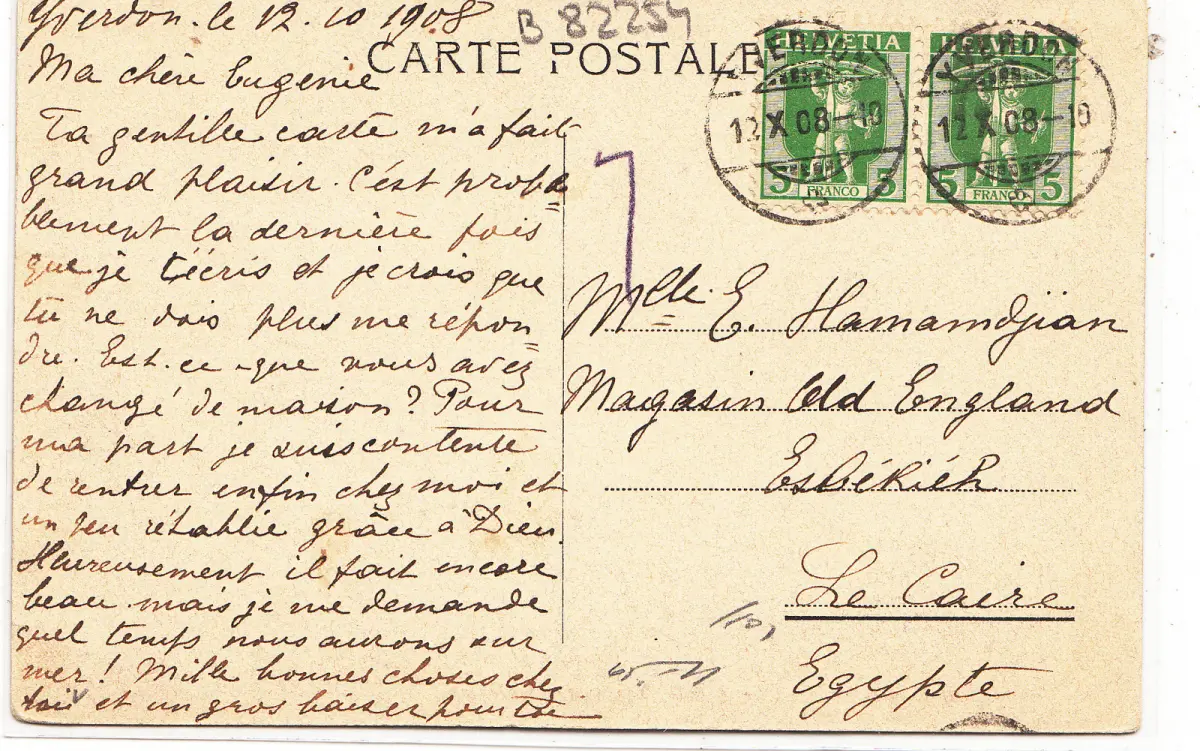 Yverdon. le 12. 10 1908
B 82254
CARTE POSTALE
Ma chère Eugenie
Ta gentille carte m'a fait
grand plaisir. C'est proba
blement la dernière fois
que je t'écris et je crois que
tu ne dois plus me répon
dre. Est-ce-que vous avez
changé de maison? Pour
ma part je suis contente
de rentrer enfin chez moi et
un peu rétablie grâce à Dieu.
Heureusement il fait encore
beau mais je me demande
quel temps nous aurons sur
mer! Mille bonnes choses chez
toi et un gros baiser pour toi
HELVETIA HELVETIA
YVERDON YVERDON
12 X 08-10 12 X 08-10
5 FRANCO 5 5 FRANCO 5
Mlle. E. Hamamdjian
Magasin Old England
Esbékiéh
Le Caire
Egypte